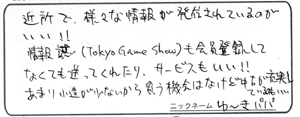 近所で、様々な情報が発信されているのが
いい!!
情報誌(Tokyo Game Show)も会員登録して
なくても送ってくれたり、サービスもいい!!
あまり小遣が少ないから買う機会はなけどキナが充実し
ている
ニックネーム ゆ〜きパパ